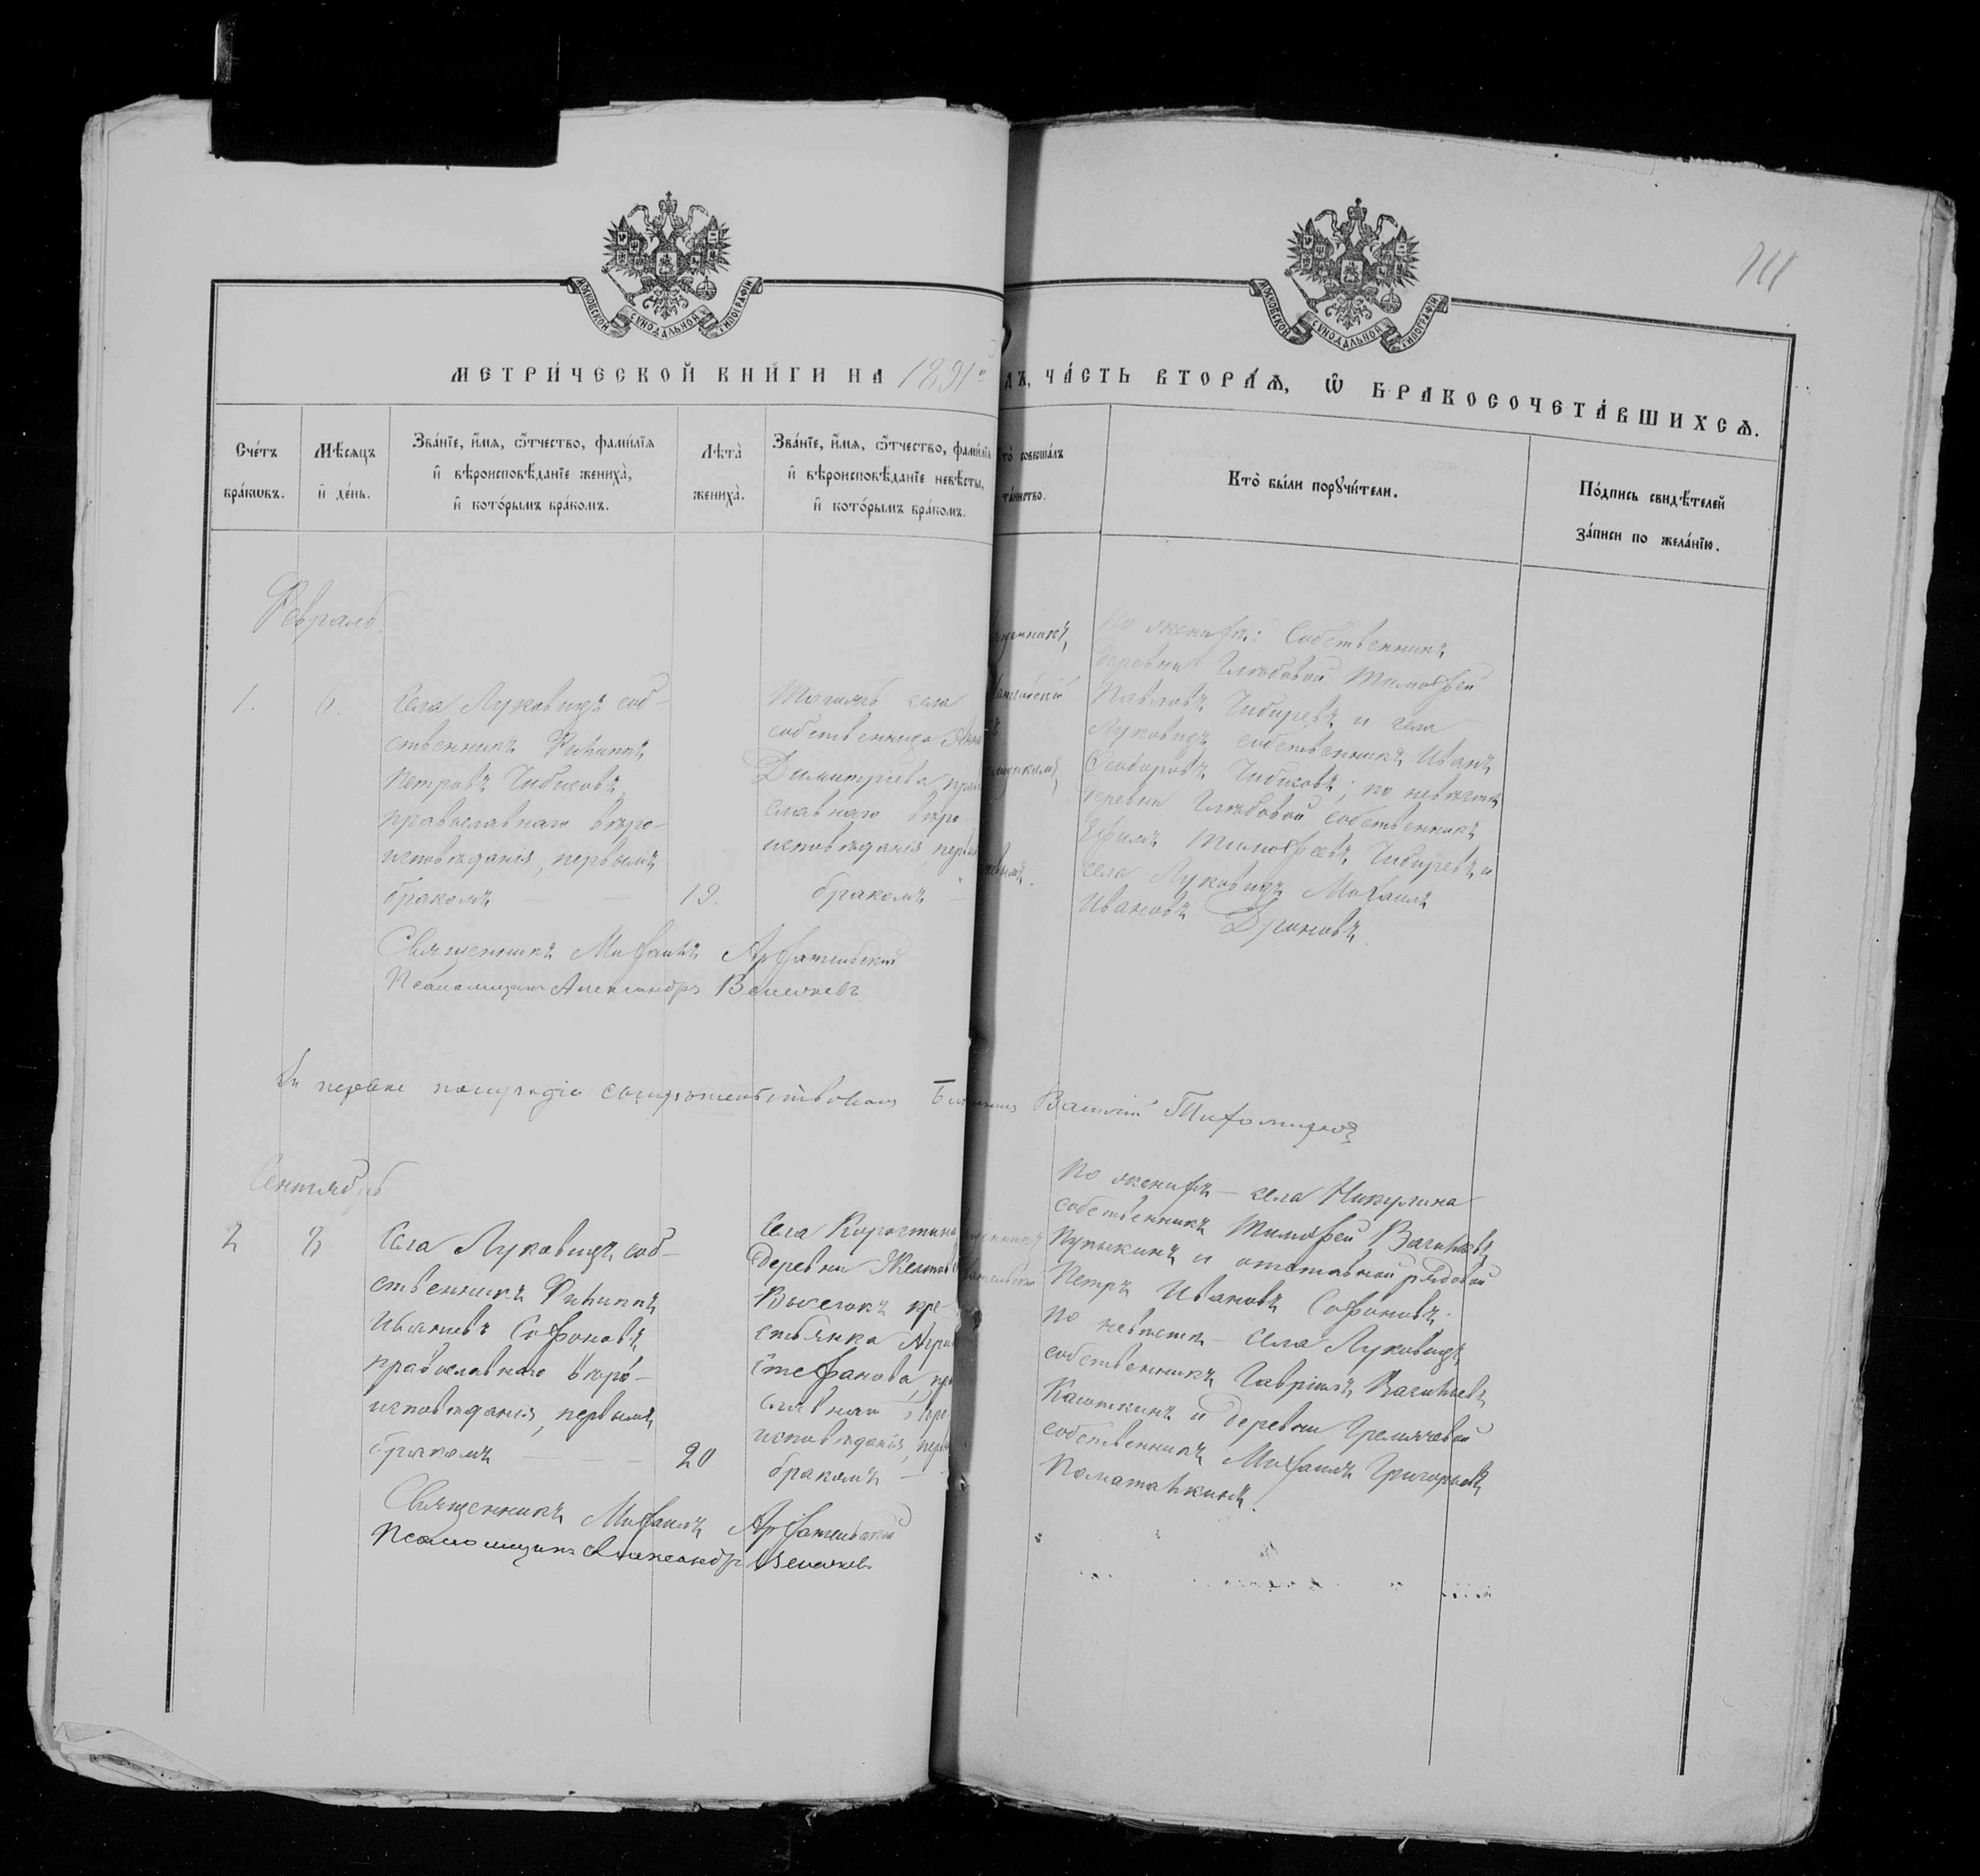 МОСКОВСКОЙ СѴНОДАЛЬНОЙ ТИПОГРАФІИ
МОСКОВСКОЙ СѴНОДАЛЬНОЙ ТИПОГРАФІИ
МЕТРИ́ЧЕСКОЙ КНИ́ГИ НА 1891й
ДЪ, ЧА́СТЬ ВТОРА́Ѧ, Ѽ БРАКОСОЧЕТА́ВШИХСѦ.
Сче́тъ бра́кѡвъ.
Мѣ́сѧцъ и҆ де́нь.
Зва́нїе, и҆́мѧ, ѻ҆́тчество, фами́лїѧ
и҆ вѣроисповѣ́данїе жениха̀,
и҆ кото́рымъ бра́комъ.
Лѣта̀ жениха̀.
Зва́нїе, и҆́мѧ, ѻ҆́тчество, фами́лїѧ
и҆ вѣроисповѣ́данїе невѣ́сты,
и҆ кото́рымъ бра́комъ.
то̀ соверша́лъ
та́инство.
Кто̀ бы́ли порꙋчи́тели.
По́дпись свидѣ́телей
за́писи по жела́нїю.
Февраль.
1.
6.
Села Луковицъ соб-
ственникъ Филиппъ
Петровъ Чибисовъ,
православнаго вѣро-
исповѣданія, первымъ
бракомъ
19.
Тогожъ села
собственница Анна
Димитріева, прав
славнаго вѣро
исповѣданія, первы
бракомъ
По женихѣ: Собственникъ
деревни Глѣбовой Тимофей
Павловъ Чибиревъ и села
Луковицъ собственникъ Иванъ
Ѳеодоровъ Чибисовъ; по невѣстѣ
деревни Глѣбовой собственникъ
Ефимъ Тимофеевъ Чибиревъ и
села Луковицъ Михаилъ
Ивановъ Дроновъ.
Священникъ Михаилъ
Псаломщикъ Александръ
первое полугодіе свидѣтельствовалъ Василій Тихомировъ
Сентябрь
2
8
Села Луковицъ соб-
ственникъ Филиппъ
Ивановъ Софоновъ,
православнаго вѣро-
исповѣданія, первымъ
бракомъ
20
Села
деревни
Выселокъ кре-
стьянка
Стефанова, пра
славнаго вѣро
исповѣданія, перв
бракомъ
По женихѣ — села Никулина
собственникъ Тимофей Васильевъ
Пупыкинъ и отставной рядовой
Петръ Ивановъ Софоновъ.
По невѣстѣ — села Луковицъ
собственникъ Гавріилъ Васильевъ
и деревни Гремячевой
собственникъ Михаилъ Григорьевъ
Священникъ Михаилъ
Псаломщикъ Александръ